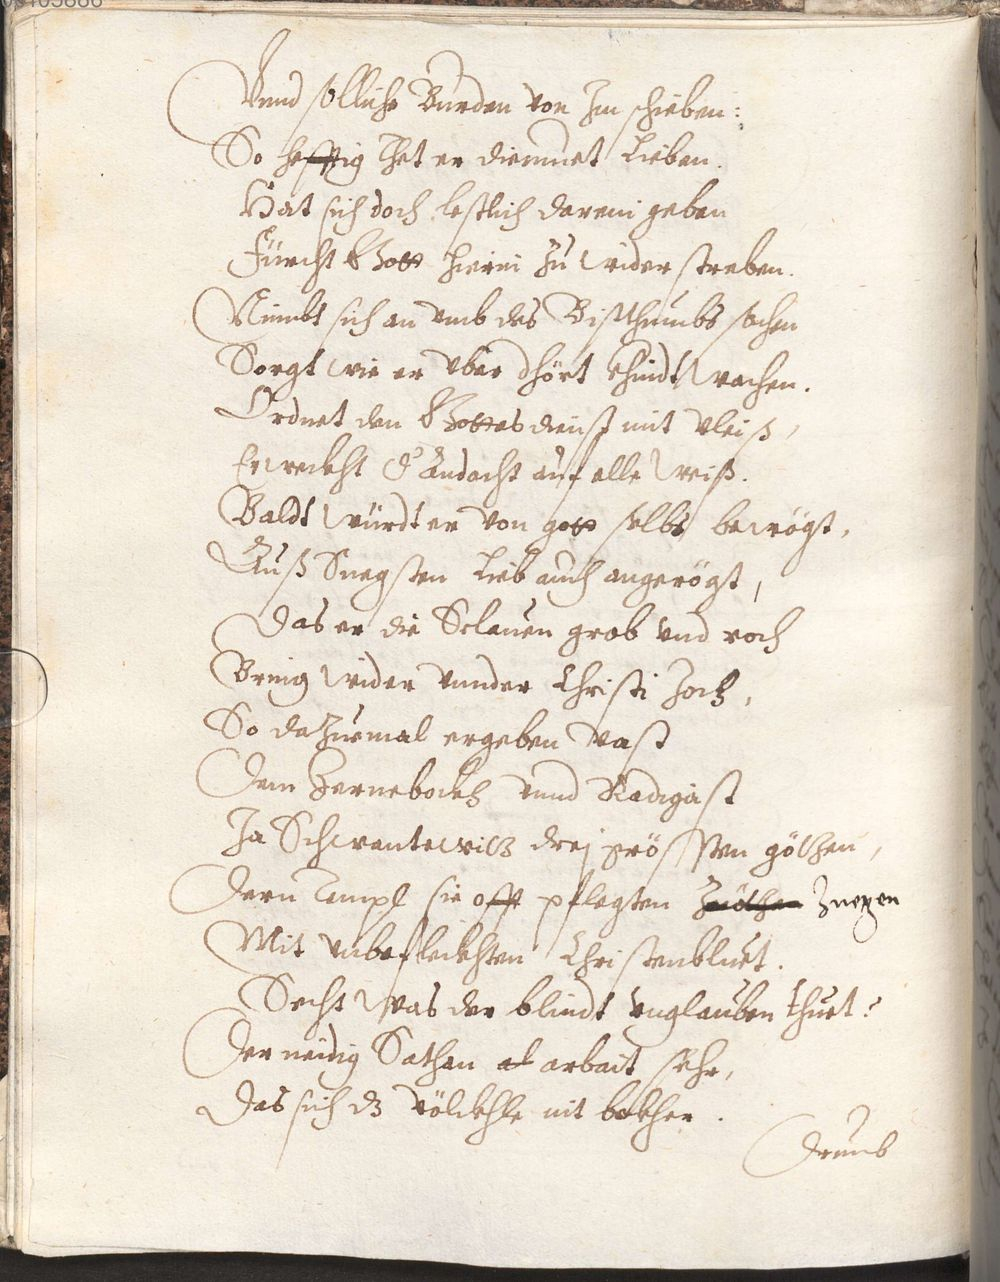 Vnnd solliche Burden von Im schieben:
So hefftig thet er diemuet Lieben.
Hat sich doch lestlich darein geben
Fürcht Gott hierin zu widerstreben.
Nimbt sich an vmb des Bisthumbs sachen
Sorgt wie er vber d'hört khindt wachen.
Ordnet den Gottesdienst mit vleiß,
Erweckht d'Andacht auf alle weiß.
Baldt würdt er von gott selbs bewögt,
Auß Lieb auch angerögt,
Das er die Sclauen grob vnd roch
Bring wider vnnder Christi Joch,
So dazuemal ergeben vast
Dem Zernebockh vnnd Radigast
Ja Schwantewitz drej grössten götzen,
Dern Templ sie offt pflegten Znezen
Mit vnbefleckhten Christenbluet.
Secht was der blindt vnglauben thuet!
Der neidig Sathan arbait sehr,
Das sich dz völckhle nit bekher.
Drumb